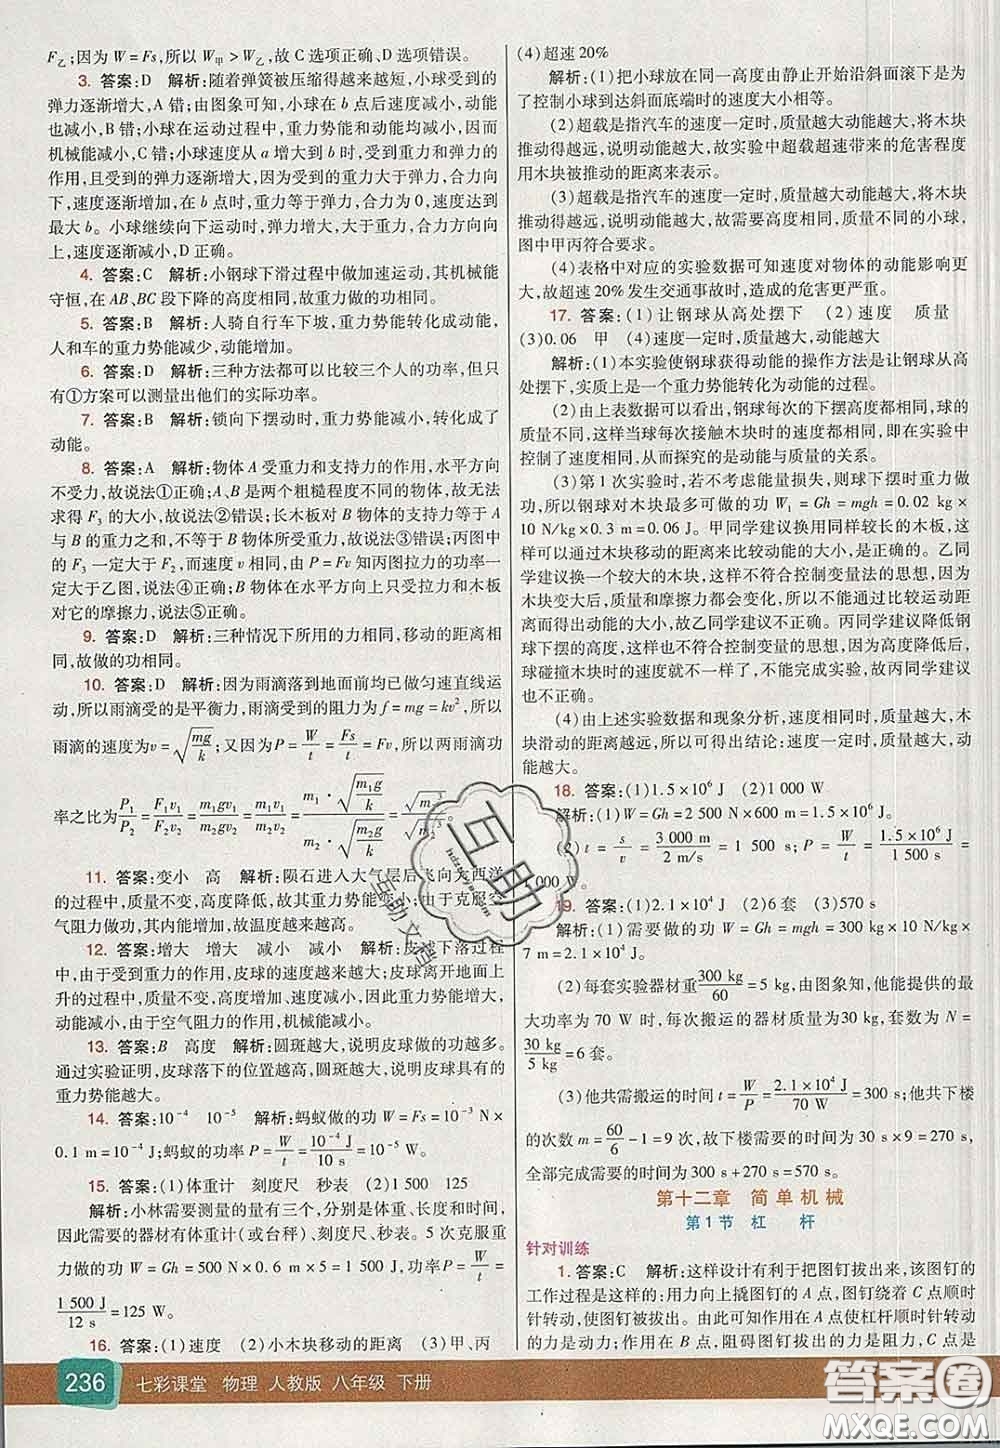 F乙;因为 W = Fs,所以 W甲 > W乙,故 C 选项正确、D 选项错误。
3. 答案:D 解析:随着弹簧被压缩得越来越短,小球受到的
弹力逐渐增大,A 错;由图象可知,小球在 b 点后速度减小,动能
也减小,B 错;小球在运动过程中,重力势能和动能均减小,因而
机械能减小,C 错;小球速度从 a 增大到 b 时,受到重力和弹力的
作用,且受到的弹力逐渐增大,因为受到的重力大于弹力,合力向
下,速度逐渐增加,在 b 点时,重力等于弹力,合力为零,速度最
大 b。小球继续向下运动时,弹力增大,重力小于弹力,合力向
上,速度逐渐减小,D 正确。
4. 答案:C 解析:小钢球下滑过程中做加速运动,其机械能
守恒,在 AB、BC 段下降的高度相同,故重力做的功相同。
5. 答案:B 解析:人骑自行车下坡,重力势能转化成动能,
人和车的重力势能减少,动能增加。
6. 答案:D 解析:三种方法都可以比较三个人的功率,但
只有①方案可以测量出他们的实际功率。
7. 答案:B 解析:锁向下摆动时,重力势能减小,转化成了
动能。
8. 答案:A 解析:物体 A 受重力和支持力的作用,水平方向
不受力,故说法①正确;A、B 是两个粗糙程度不同的物体,故无法
求得 F3 的大小,故说法②错误;长木板对 B 物体的支持力等于 A
与 B 的重力之和,不等于 B 物体受到的重力,故说法③错误;丙图中
的 F3 一定大于 F2,而速度 v 相同,由 P = Fv 知丙图拉力的功率一
定大于乙图,说法④正确;B 物体在水平方向上只受拉力和木板
对它的摩擦力,故说法⑤正确。
9. 答案:D 解析:三种情况下所用的力相同,移动的距离相
同,故做的功相同。
10. 答案:D 解析:因为雨滴落到地面前均已做匀速直线运
动,所以雨滴受的是平衡力,雨滴受到的阻力为 f = mg = kv²,所以
雨滴的速度为 v = √(mg/k);又因为 P = W/t = Fs/t = Fv,所以两雨滴功
率之比为 P1/P2 = F1v1/F2v2 = m1gv1/m2gv2 = m1v1/m2v2 = (m1·√(m1g/k))/(m2·√(m2g/k))
11. 答案:变小 高 解析:陨石进入大气层后飞向大西洋
质量不变,高度降低,故其重力势能变小,由于克服空
气阻力做功,内能增加,故温度越来越高。
12. 答案:增大 增大 减小 减小 解析:皮球下落过程
中,由于受到重力的作用,皮球的速度越来越大;皮球离开地面上
升的过程中,质量不变,高度增加,因此重力势能增大,
动能减小,由于空气阻力的作用,机械能减小。
13. 答案:B 高度 解析:圆斑越大,皮球做的功越多。
通过实验证明,皮球下落的位置越高,圆斑越大,高度越高,重
力势能越大。
14. 答案:10⁻⁴ 10⁻⁵ 解析:蚂蚁做的功 W = Fs = 10⁻³ N ×
0.1 m = 10⁻⁴ J,蚂蚁的功率 P = W/t = 10⁻⁴ J/10 s = 10⁻⁵ W。
15. 答案:(1)体重计 刻度尺 秒表 (2)1500 125
解析:小林需要测量的量有三个,分别是体重、高度和时间,
对应的器材有体重计(或台秤)、刻度尺、秒表。5 次克服重
力做功 W = Gh = 500 N × 0.6 m × 5 = 1 500 J,功率 P = W/t =
1 500 J/12 s = 125 W。
16. 答案:(1)速度 (2)小木块移动的距离 (3)甲、丙
(4)超速 20%
解析:(1)把小球放在同一高度由静止开始沿斜面滚下是为
了控制小球到达斜面底端时的速度大小相等。
(2)超载是指汽车的速度一定时,质量越大动能越大,将木块
推动得越远,说明动能越大。故实验中超载超速带来的危害程度
用木块被推动的距离来表示。
(3)超载是指汽车的速度一定时,质量越大动能越大,将木块
推动得越远,说明动能越大,故需要高度相同、质量不同的小球,
图中甲丙符合要求。
(4)表格中对应的实验数据可知速度对物体的动能影响更
大,故超速 20% 发生交通事故时,造成的危害更严重。
17. 答案:(1)让钢球从高处摆下 (2)速度 质量
(3)0.06 甲 (4)速度一定时,质量越大,动能越大
解析:(1)本实验使钢球获得动能的操作方法是让钢球从高
处摆下,实质上是一个重力势能转化为动能的过程。
(2)由上表数据可以看出,钢球每次的下摆高度都相同,球的
质量不同,这意味着当球每次接触木块时的速度大小相同,即在实验中
控制了速度大小不变,从而探究的是动能与质量的关系。
(3)第 1 次实验时,若不考虑能量损失,则球下摆时重力做
功,所以钢球对木块最多可做的功 W1 = Gh = mgh = 0.02 kg ×
10 N/kg × 0.3 m = 0.06 J。甲同学建议换用同样较长的木板,这样
可以通过木块移动的距离来比较动能的大小,是正确的。乙同
学建议换一个较大的木块,这样不符合控制变量法的思想,因为
木块变大后,质量和摩擦力都会变化,所以不能比较运动
距离而得出动能的大小,故乙同学建议不正确。丙同学建议降低钢
球下摆的高度,这样也不符合控制变量的思想,当高度降低后,钢
球碰撞木块时的速度就会减小,不能完成实验,故丙同学建议
也不正确。
(4)由上述实验数据和现象分析,速度相同时,质量越大,木
块滑动的距离越远,所以可得出结论:速度一定时,质量越大,动
能越大。
18. 答案:(1)1.5 × 10⁶ J (2)1 000 W
解析:(1)W = Gh = 2 500 N × 600 m = 1.5 × 10⁶ J。
(2)t = s/v = 3 000 m/2 m/s = 1 500 s;P = W/t = 1.5 × 10⁶ J/1 500 s =
1 000 W。
19. 答案:(1)2.1 × 10⁴ J (2)6 套 (3)570 s
解析:(1)需要做的功 W = Gh = mgh = 300 kg × 10 N/kg ×
7 m = 2.1 × 10⁴ J。
(2)每套实验器材重 300 kg/60 = 5 kg,由图象知,他能提供的最
大功率为 70 W 时,每次搬运的器材质量为30 kg,故套数 N =
30 kg/5 kg = 6 套。
(3)他共需搬运的时间 t = W/P = 2.1 × 10⁴ J/70 W = 300 s;他共下楼
的次数 m = 60/6 − 1 = 9 次,故下楼需要的时间为 30 s × 9 = 270 s,
全部完成需要的时间为 300 s + 270 s = 570 s。
第十二章 简单机械
第 1 节 杠 杆
针对训练
1. 答案:C 解析:这样设计有利于把图钉拔出来,该图钉的
工作过程是:用力向上撬图钉的 A 点,图钉绕着 C 点顺时
针转动,使图钉被拔出。由此可知作用在 A 点使杠杆顺时针转动的
力为动力;作用在 B 点、阻碍图钉拔出的力是阻力,C 点是
236 七彩课堂 物理 人教版 八年级 下册
互助
hdzuoye.com
互助文档
答案圈
MXQE.COM